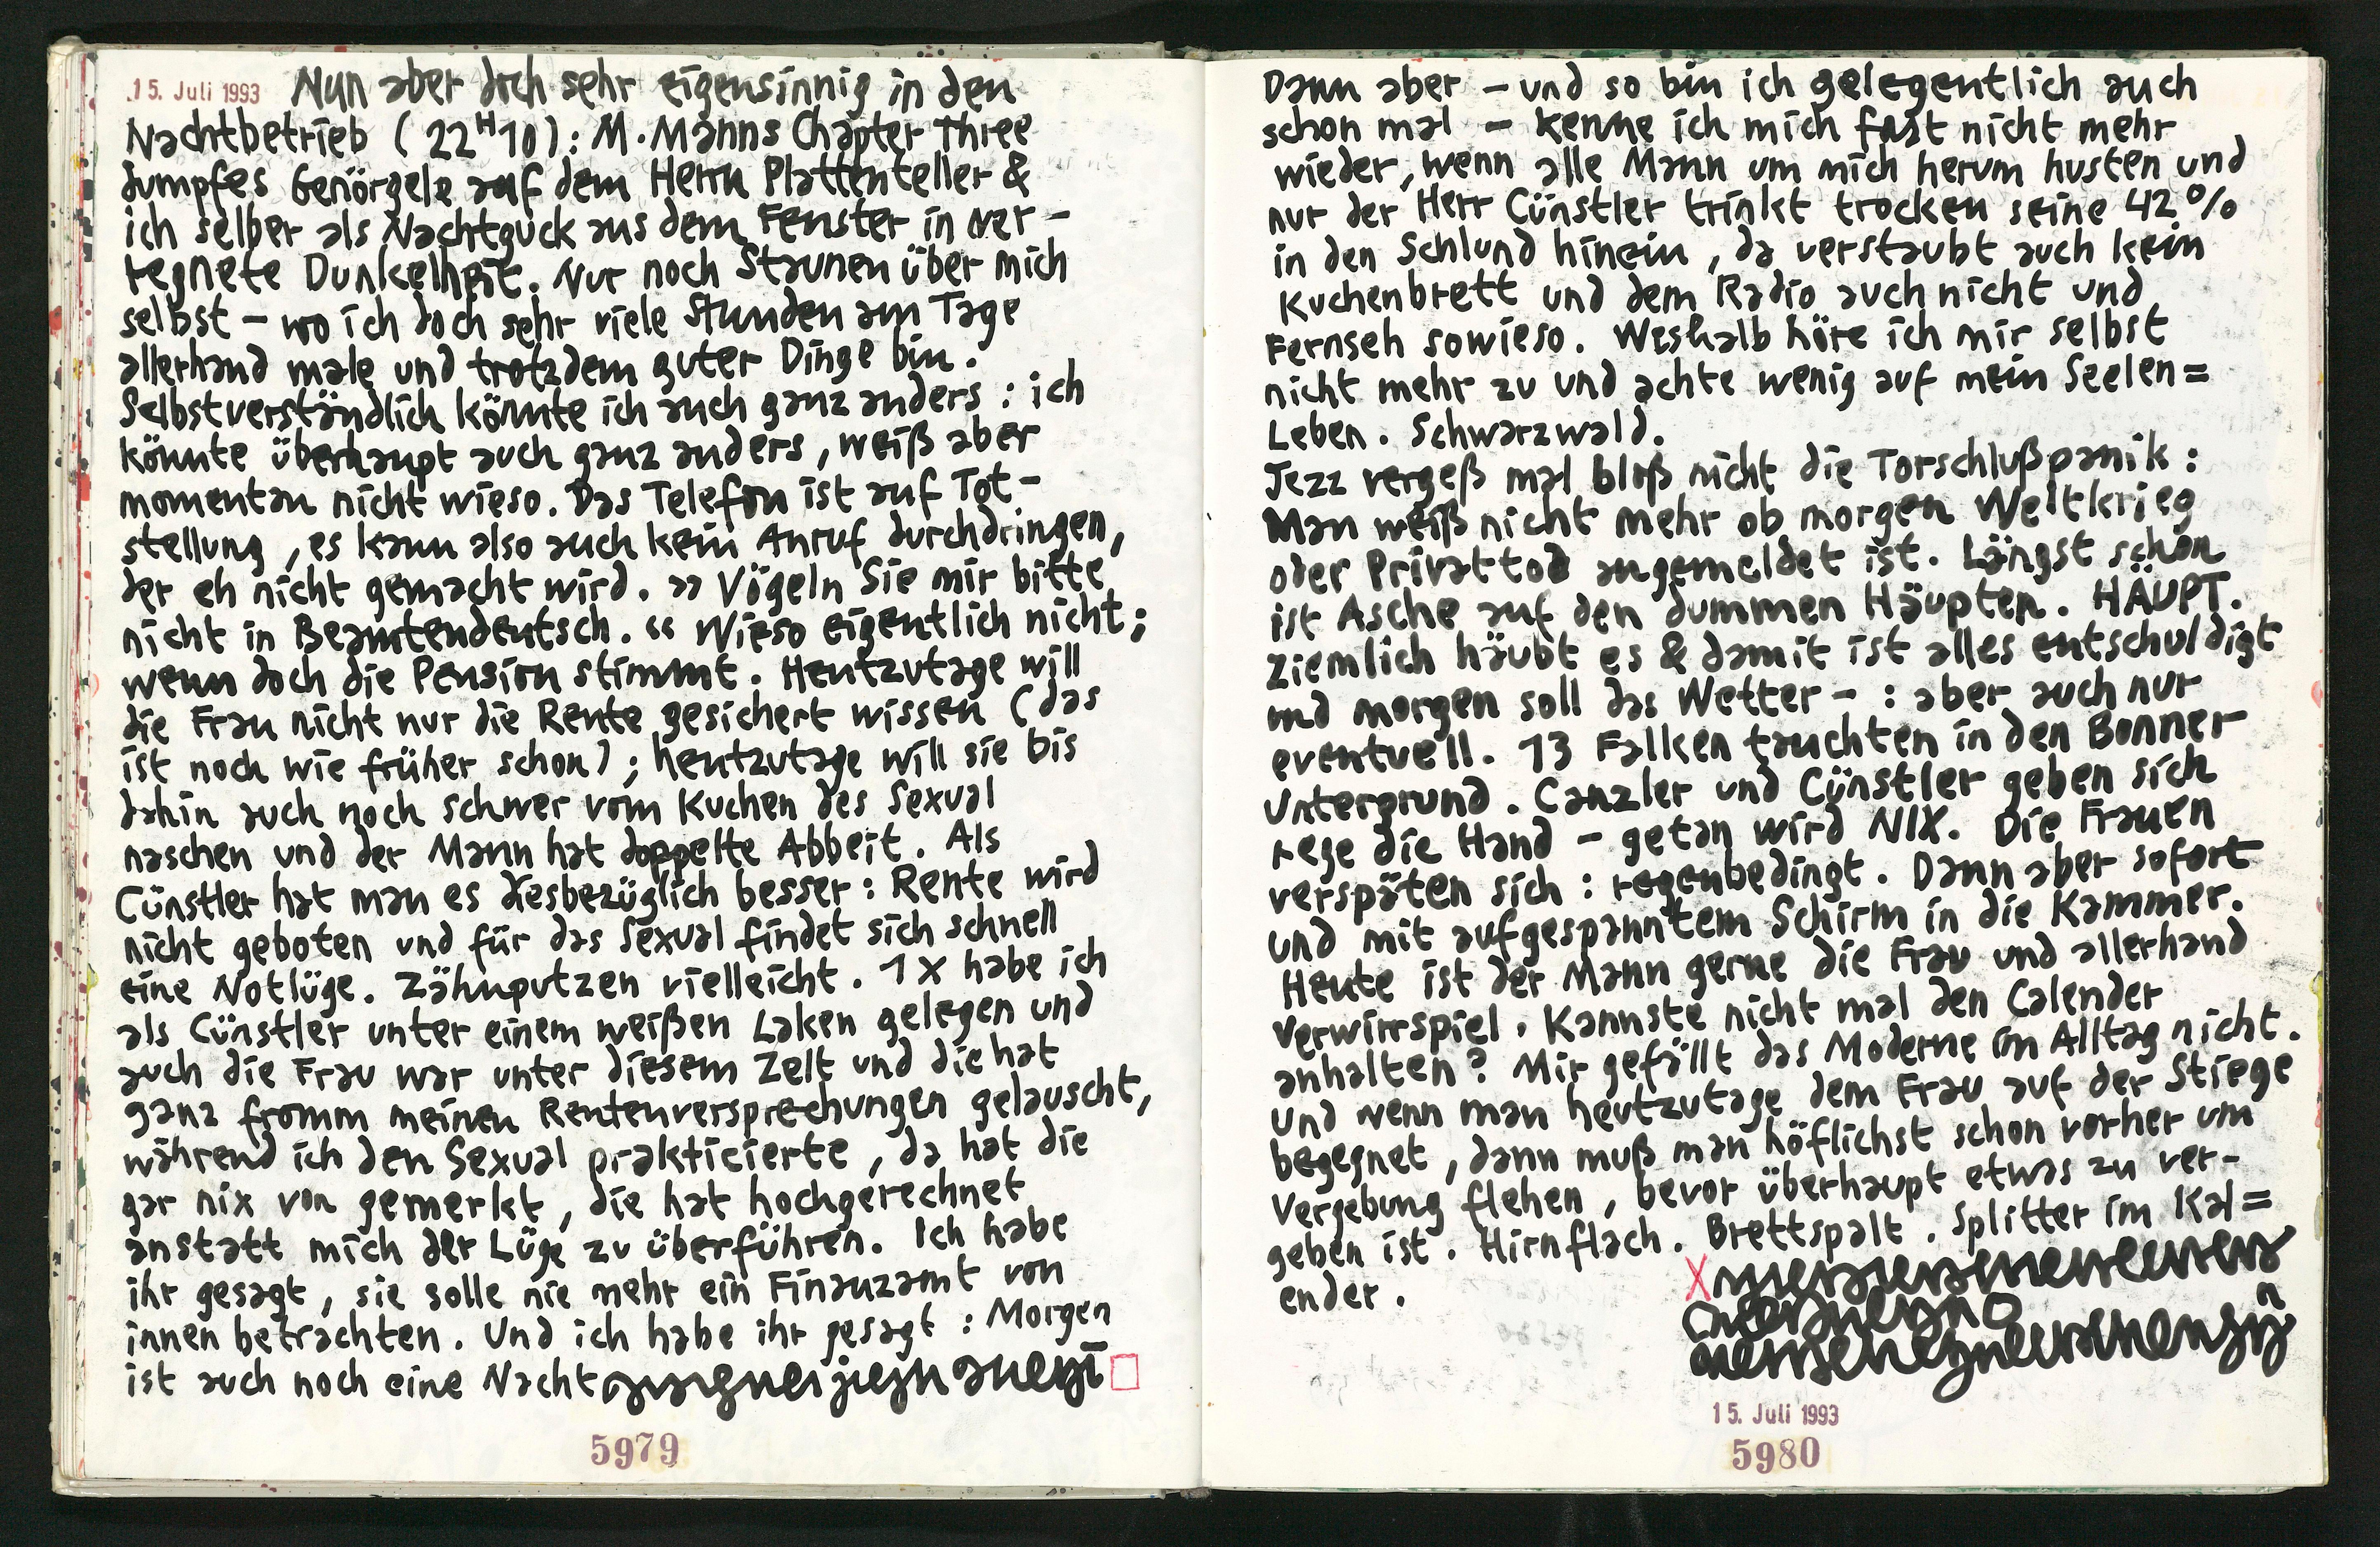 15. Juli 1993 Nun aber doch sehr eigensinnig in den
Nachtbetrieb (22H10): M. Manns Chapter Three
dumpfes Genörgele auf dem Herrn Plattenteller &
ich selber als Nachtguck aus dem Fenster in ver-
regnete Dunkelheit. Nur noch Staunen über mich
selbst – wo ich doch sehr viele Stunden am Tage
allerhand male und trotzdem guter Dinge bin.
Selbstverständlich könnte ich auch ganz anders: ich
könnte überhaupt auch ganz anders, weiß aber
momentan nicht wieso. Das Telefon ist auf Tot-
stellung, es kann also auch kein Anruf durchdringen,
der eh nicht gemacht wird. »Vögeln Sie mir bitte
nicht in Beamtendeutsch.« Wieso eigentlich nicht;
wenn doch die Pension stimmt. Heutzutage will
die Frau nicht nur die Rente gesichert wissen (das
ist noch wie früher schon); heutzutage will sie bis
dahin auch noch schwer vom Kuchen des Sexual
naschen und der Mann hat doppelte Abbeit. Als
Cünstler hat man es diesbezüglich besser: Rente wird
nicht geboten und für das Sexual findet sich schnell
eine Notlüge. Zähnputzen vielleicht. 1X habe ich
als Cünstler unter einem weißen Laken gelegen und
auch die Frau war unter diesem Zelt und die hat
ganz fromm meinen Rentenversprechungen gelauscht,
während ich den Sexual prakticierte, da hat die
gar nix von gemerkt, die hat hochgerechnet
anstatt mich der Lüge zu überführen. Ich habe
ihr gesagt, sie solle nie mehr ein Finanzamt von
innen betrachten. Und ich habe ihr gesagt: Morgen
ist auch noch eine Nacht
5979
Dann aber – und so bin ich gelegentlich auch
schon mal – kenne ich mich fast nicht mehr
wieder, wenn alle Mann um mich herum husten und
nur der Herr Cünstler trinkt trocken seine 42%
in den Schlund hinein, da verstaubt auch kein
Kuchenbrett und dem Radio auch nicht und
Fernseh sowieso. Weshalb höre ich mir selbst
nicht mehr zu und achte wenig auf mein Seelen=
Leben. Schwarzwald.
Jezz vergeß mal bloß nicht die Torschlußpanik:
Man weiß nicht mehr ob morgen Weltkrieg
oder Privattod angemeldet ist. Längst schon
ist Asche auf den dummen Häupten. HÄUPT.
Ziemlich häubt es & damit ist alles entschuldigt
und morgen soll das Wetter – : aber auch nur
eventuell. 13 Falken tauchten in den Bonner
Untergrund. Canzler und Cünstler geben sich
rege die Hand – getan wird NIX. Die Frauen
verspäten sich: regenbedingt. Dann aber sofort
und mit aufgespanntem Schirm in die Kammer.
Heute ist der Mann gerne die Frau und allerhand
Verwirrspiel. Kannste nicht mal den Calender
anhalten? Mir gefällt das Moderne im Alltag nicht.
Und wenn man heutzutage dem Frau auf der Stiege
begegnet, dann muß man höflichst schon vorher um
Vergebung flehen, bevor überhaupt etwas zu ver-
geben ist. Hirnflach. Brettspalt. Splitter im Kal=
ender.
15. Juli 1993
5980